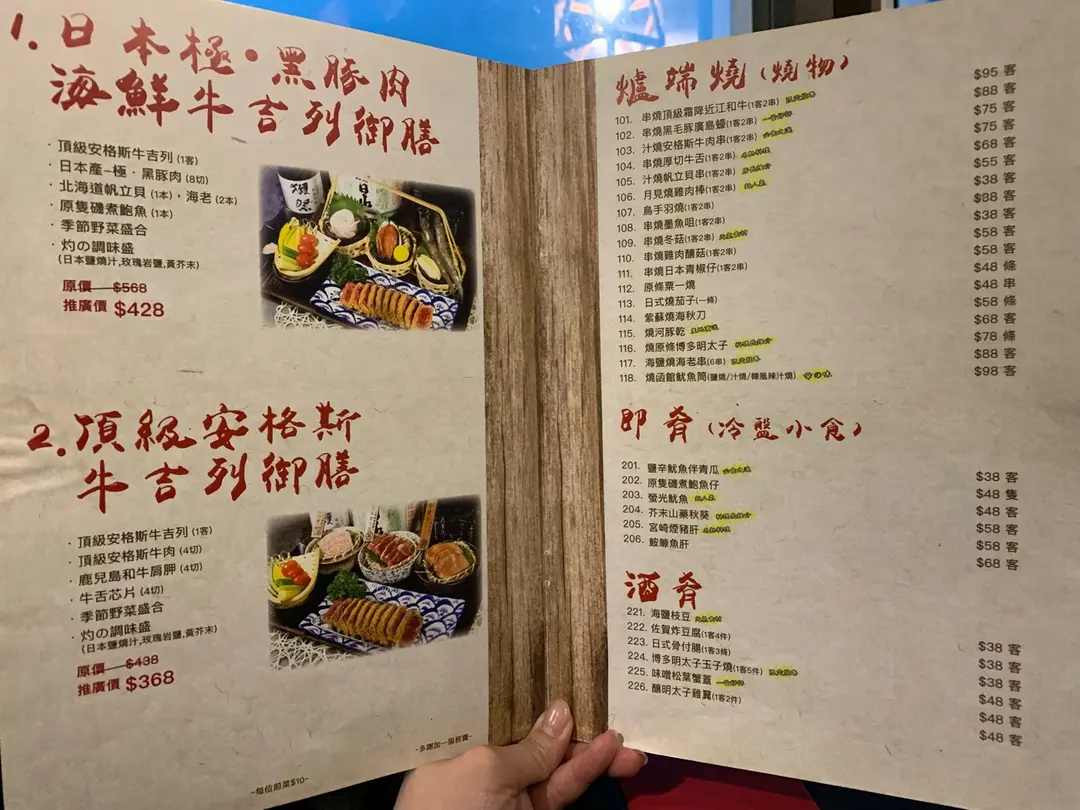 1. 日本極·黑豚肉
海鮮牛吉列御膳
· 頂級安格斯牛吉列 (1客)
· 日本產–極·黑豚肉 (8切)
· 北海道帆立貝 (1本)，海老 (2本)
· 原隻磯煮鮑魚 (1本)
· 季節野菜盛合
· 灼の調味盛
(日本鹽燒汁,玫瑰岩鹽,黃芥末)
原價 $568
推廣價 $428
2. 頂級安格斯
牛吉列御膳
· 頂級安格斯牛吉列 (1客)
· 頂級安格斯牛肉 (4切)
· 鹿兒島和牛肩胛 (4切)
· 牛舌芯片 (4切)
· 季節野菜盛合
· 灼の調味盛
(日本鹽燒汁,玫瑰岩鹽,黃芥末)
原價 $438
推廣價 $368
-每位前菜$10-
-多謝加一服務費-
爐端燒 (燒物)
101. 串燒頂級霜降近江和牛(1客2串) $95 客
102. 串燒黑毛豚廣島蠔(1客2串) $88 客
103. 汁燒安格斯牛肉串(1客2串) $75 客
104. 串燒厚切牛舌(1客2串) $75 客
105. 汁燒帆立貝串(1客2串) $68 客
106. 月見燒雞肉棒(1客2串) $55 客
107. 鳥手羽燒(1客2串) $38 客
108. 串燒墨魚咀(1客2串) $88 客
109. 串燒冬菇(1客2串) $38 客
110. 串燒雞肉釀菇(1客2串) $58 客
111. 串燒日本青椒仔(1客2串) $58 客
112. 原條粟一燒 $48 條
113. 日式燒茄子(一條) $48 串
114. 紫蘇燒海秋刀 $58 條
115. 燒河豚乾 $68 客
116. 燒原條博多明太子 $78 條
117. 海鹽燒海老串(6串) $88 客
118. 燒函館魷魚筒(鹽燒/汁燒/韓風辣汁燒) $98 客
即肴 (冷盤小食)
201. 鹽辛魷魚伴青瓜 $38 客
202. 原隻磯煮鮑魚仔 $48 隻
203. 螢光魷魚 $48 客
204. 芥末山藥秋葵 $58 客
205. 宮崎煙豬肝 $58 客
206. 鮟鱇魚肝 $68 客
酒肴
221. 海鹽枝豆 $38 客
222. 佐賀炸豆腐(1客4件) $38 客
223. 日式骨付腸(1客3條) $38 客
224. 博多明太子玉子燒(1客5件) $48 客
225. 味噌松葉蟹蓋 $48 客
226. 釀明太子雞翼(1客2件) $48 客